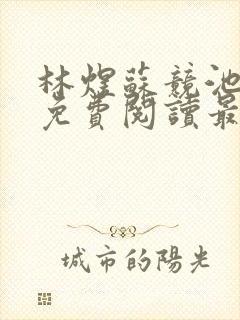 林煜蘇競池
免費閱讀最
城市的陽光